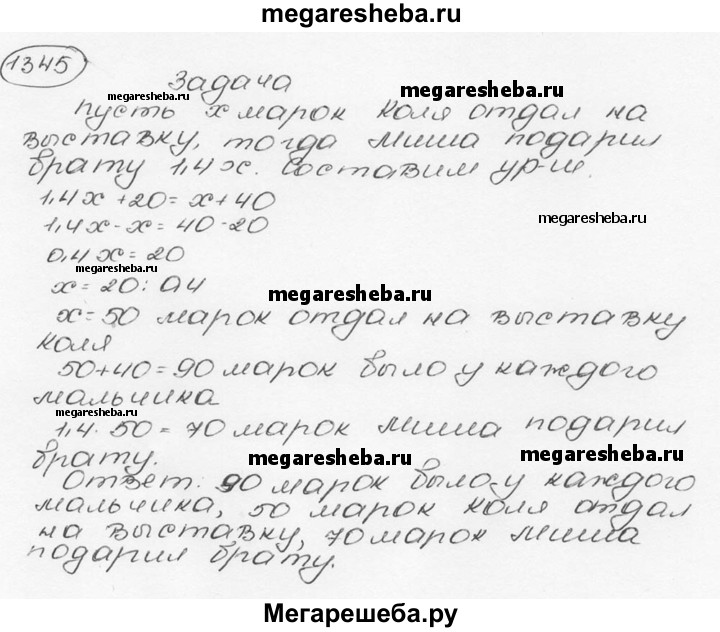 megaresheba.ru
1345
Задача
megaresheba.ru megaresheba.ru
пусть x марок Коля отдал на
выставку, тогда Миша подарил
брату 1,4x. Составим ур-ие.
1,4x + 20 = x + 40
1,4x - x = 40 - 20
megaresheba.ru
0,4x = 20
megaresheba.ru
x = 20 : 0,4
megaresheba.ru
x = 50 марок отдал на выставку
Коля
50 + 40 = 90 марок было у каждого
мальчика
megaresheba.ru
1,4 · 50 = 70 марок Миша подарил
брату.
megaresheba.ru megaresheba.ru
Ответ. 90 марок было у каждого
мальчика, 50 марок Коля отдал
на выставку, 70 марок Миша
подарил брату.
Мегарешеба.ру